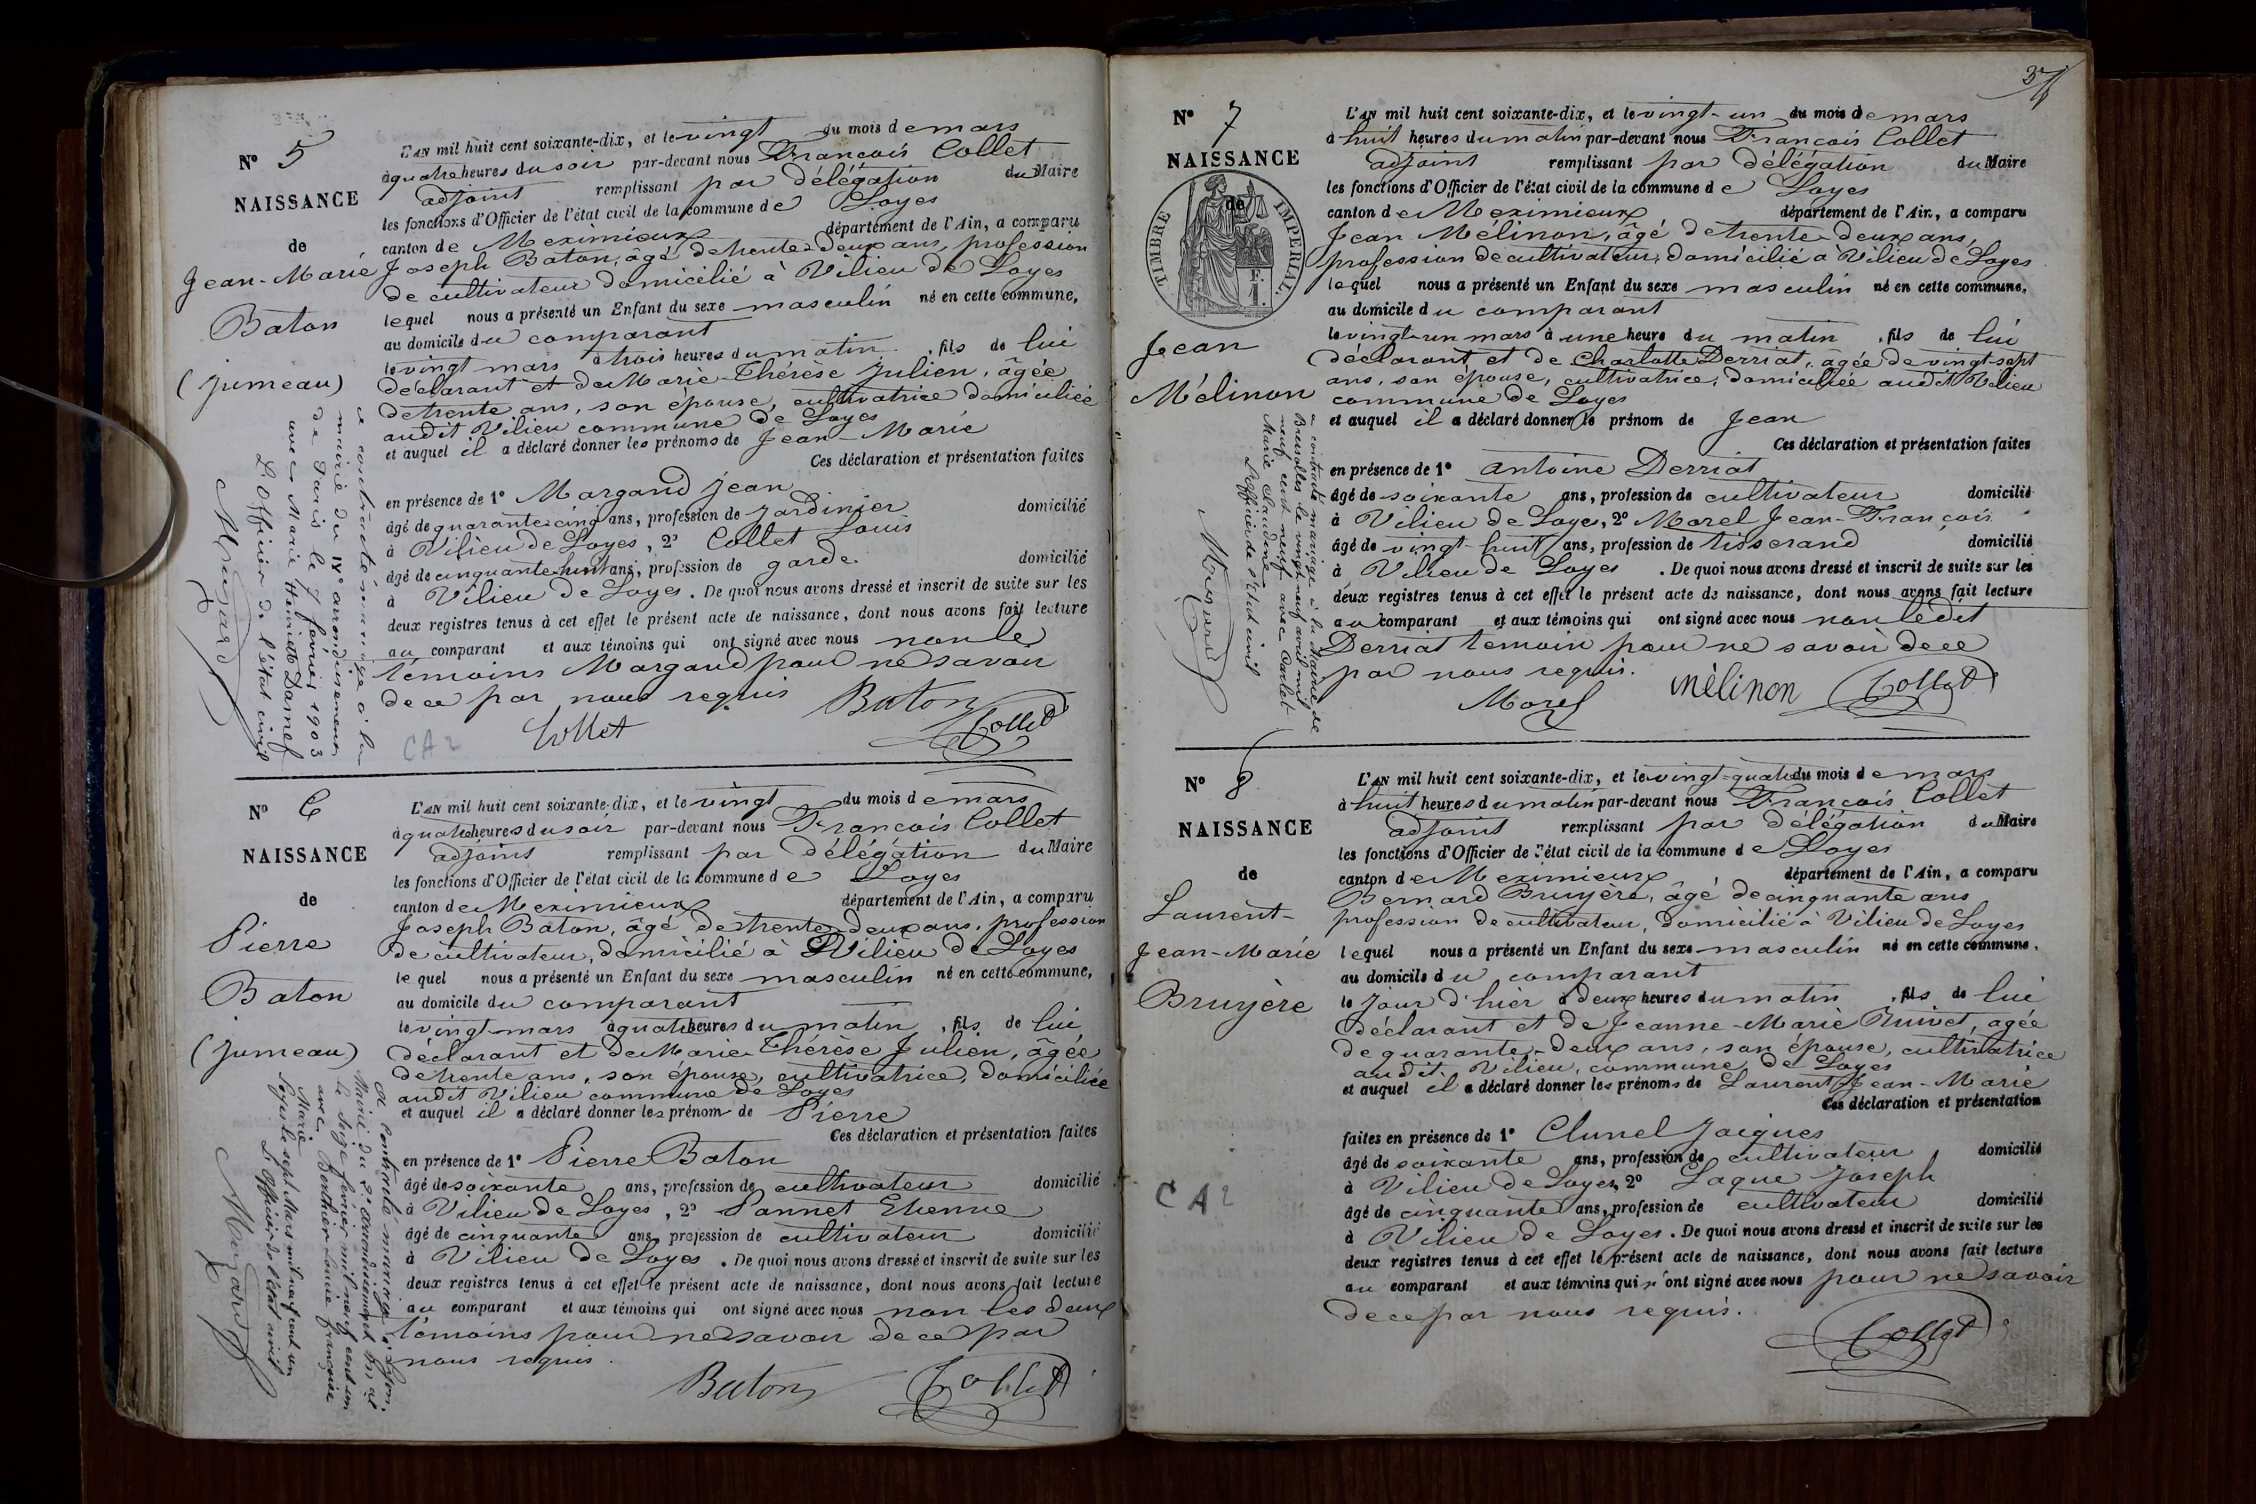 Nº 5
NAISSANCE
de
Jean-Marie
Baton
(jumeau)
a contracté mariage à la
mairie du IVe arrondissement
de Paris le 7 février 1903
avec Marie Henriette Damef
L'Officier de l'état civil
L'AN mil huit cent soixante-dix, et le vingt du mois de mars
à quatre heures du soir par-devant nous François Collet
adjoint remplissant par délégation du Maire
les fonctions d'Officier de l'état civil de la commune de Loyes
canton de Meximieux département de l'Ain, a comparu
Joseph Baton, âgé de trente-deux ans, profession
de cultivateur domicilié à Vilieu de Loyes
lequel nous a présenté un Enfant du sexe masculin né en cette commune,
au domicile du comparant
le vingt mars à trois heures du matin, fils de lui
déclarant et de Marie-Thérèse Julien, âgée
de trente ans, son épouse, cultivatrice domiciliée
audit Vilieu commune de Loyes
et auquel il a déclaré donner les prénoms de Jean-Marie
Ces déclaration et présentation faites
en présence de 1º Margand Jean
âgé de quarante cinq ans, profession de jardinier domicilié
à Vilieu de Loyes, 2º Collet Louis
âgé de cinquante-huit ans, profession de garde domicilié
à Vilieu de Loyes. De quoi nous avons dressé et inscrit de suite sur les
deux registres tenus à cet effet le présent acte de naissance, dont nous avons fait lecture
au comparant et aux témoins qui ont signé avec nous non le
témoins Margand pour ne savoir
de ce par nous requis
Baton
Collet
Collet
CA2
Nº 6
NAISSANCE
de
Pierre
Baton
(jumeau)
a contracté mariage à Lyon
Mairie du 2e arrondissement
le seize février mil neuf cent un
avec Berthier Louise Françoise
Marie
Loyes le sept Mars mil neuf cent un
L'Officier de l'état civil
L'AN mil huit cent soixante-dix, et le vingt du mois de mars
à quatre heures du soir par-devant nous François Collet
adjoint remplissant par délégation du Maire
les fonctions d'Officier de l'état civil de la commune de Loyes
canton de Meximieux département de l'Ain, a comparu
Joseph Baton, âgé de trente-deux ans, profession
de cultivateur, domicilié à Vilieu de Loyes
lequel nous a présenté un Enfant du sexe masculin né en cette commune,
au domicile du comparant
le vingt mars à quatre heures du matin, fils de lui
déclarant et de Marie Thérèse Julien, âgée
de trente ans, son épouse, cultivatrice, domiciliée
audit Vilieu commune de Loyes
et auquel il a déclaré donner les prénom de Pierre
Ces déclaration et présentation faites
en présence de 1º Pierre Baton
âgé de soixante ans, profession de cultivateur domicilié
à Vilieu de Loyes, 2º Pannet Etienne
âgé de cinquante ans profession de cultivateur domicilié
à Vilieu de Loyes. De quoi nous avons dressé et inscrit de suite sur les
deux registres tenus à cet effet le présent acte de naissance, dont nous avons fait lecture
au comparant et aux témoins qui ont signé avec nous non les deux
témoins pour ne savoir de ce par
nous requis.
Baton
Collet
37
Nº 7
NAISSANCE
de
TIMBRE IMPERIAL
Jean
Mélinon
a contracté mariage à la Mairie de
Bressolles le vingt neuf avril mil
neuf cent neuf avec Carlet
Marie Claudine
L'officier de l'état civil
L'AN mil huit cent soixante-dix, et le vingt-un du mois de mars
à huit heures du matin par-devant nous François Collet
adjoint remplissant par délégation du Maire
les fonctions d'Officier de l'état civil de la commune de Loyes
canton de Meximieux département de l'Ain, a comparu
Jean Mélinon, âgé de trente-deux ans,
profession de cultivateur, domicilié à Vilieu de Loyes
lequel nous a présenté un Enfant du sexe masculin né en cette commune,
au domicile du comparant
le vingt-un mars à une heure du matin, fils de lui
déclarant et de Charlotte Derriat, agée de vingt-sept
ans, son épouse, cultivatrice, domiciliée audit Vilieu
commune de Loyes
et auquel il a déclaré donner le prénom de Jean
Ces déclaration et présentation faites
en présence de 1º Antoine Derriat
âgé de soixante ans, profession de cultivateur domicilié
à Vilieu de Loyes, 2º Morel Jean-François
âgé de vingt-huit ans, profession de tisserand domicilié
à Vilieu de Loyes. De quoi nous avons dressé et inscrit de suite sur les
deux registres tenus à cet effet le présent acte de naissance, dont nous avons fait lecture
au comparant et aux témoins qui ont signé avec nous non ledit
Derriat témoin pour ne savoir de ce
par nous requis.
Morel
Mélinon
Collet
Nº 8
NAISSANCE
de
Laurent-
Jean-Marie
Bruyère
CA2
L'AN mil huit cent soixante-dix, et le vingt-quatre du mois de mars
à huit heures du matin par-devant nous François Collet
adjoint remplissant par délégation du Maire
les fonctions d'Officier de l'état civil de la commune de Loyes
canton de Meximieux département de l'Ain, a comparu
Bernard Bruyère, âgé de cinquante ans
profession de cultivateur, domicilié à Vilieu de Loyes
lequel nous a présenté un Enfant du sexe masculin né en cette commune,
au domicile du comparant
le jour d'hier à deux heures du matin, fils de lui
déclarant et de Jeanne-Marie, agée
de quarante-deux ans, son épouse, cultivatrice
audit Vilieu, commune de Loyes
et auquel il a déclaré donner les prénoms de Laurent Jean-Marie
Ces déclaration et présentation
faites en présence de 1º Clunel Jacques
âgé de soixante ans, profession de cultivateur domicilié
à Vilieu de Loyes, 2º Laque Joseph
âgé de cinquante ans, profession de cultivateur domicilié
à Vilieu de Loyes. De quoi nous avons dressé et inscrit de suite sur les
deux registres tenus à cet effet le présent acte de naissance, dont nous avons fait lecture
au comparant et aux témoins qui n'ont signé avec nous pour ne savoir
de ce par nous requis.
Collet